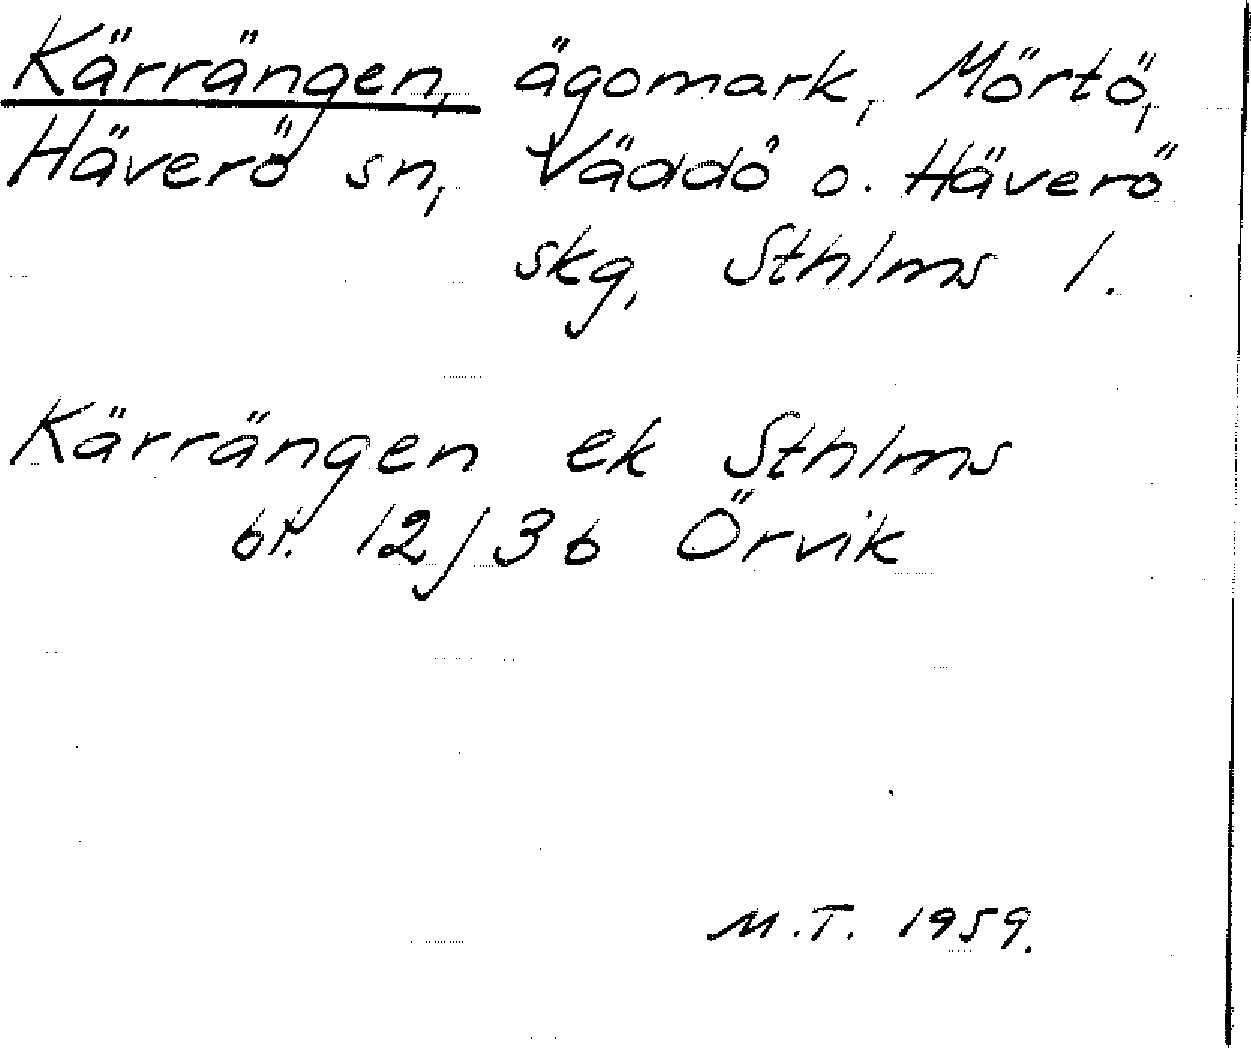 Kärrängen, ägomark, Mörtö,
Häverö sn, Väddö o. Häverö
skg, Sthlms l.
Kärrängen ek Sthlms
bl. 12/36 Örvik
M.T. 1959.